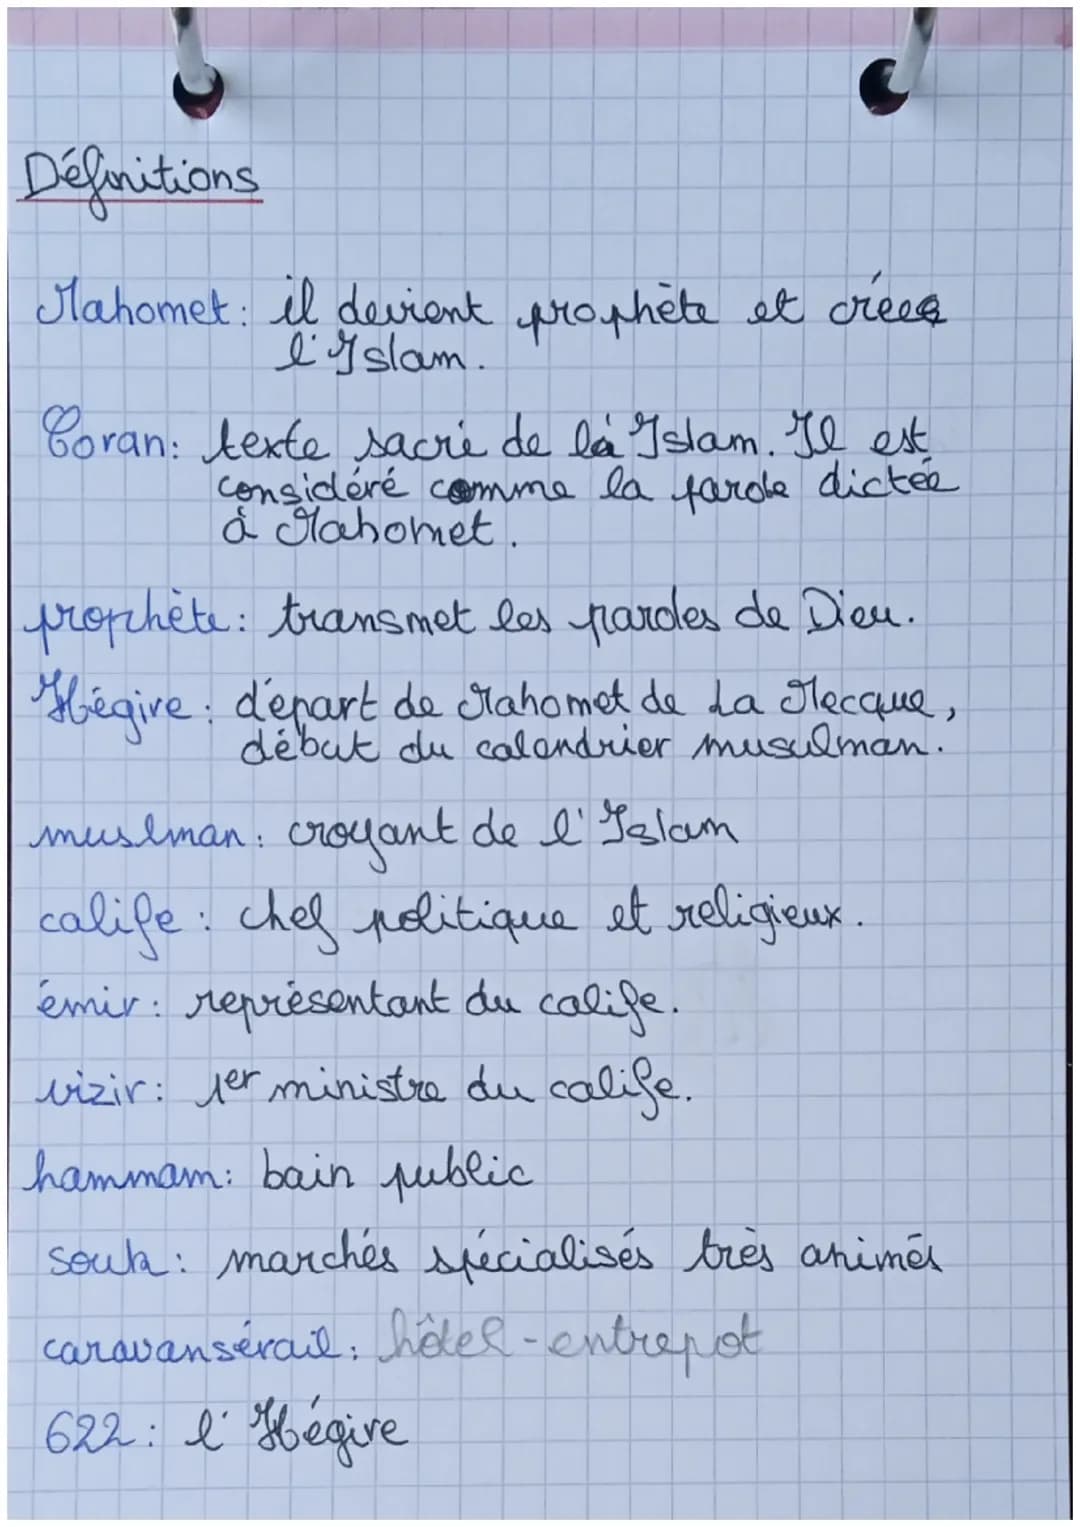 Définitions
Mahomet: il devient prophète et crée
l'Islam.
Coran: texte sacré de l'Islam. Il est
considéré comme la parole dictée
à Mahomet.
prophète: transmet les paroles de Dieu.
Hégire: départ de Mahomet de La Mecque,
début du calendrier musulman.
muslman: croyant de l'Islam
calife: chef politique et religieux.
émir: représentant du calife.
vizir: 1er ministre du calife.
hammam: bain public
souk: marchés spécialisés très animés
caravansérail: hôtel-entrepot
622: l'Hégire